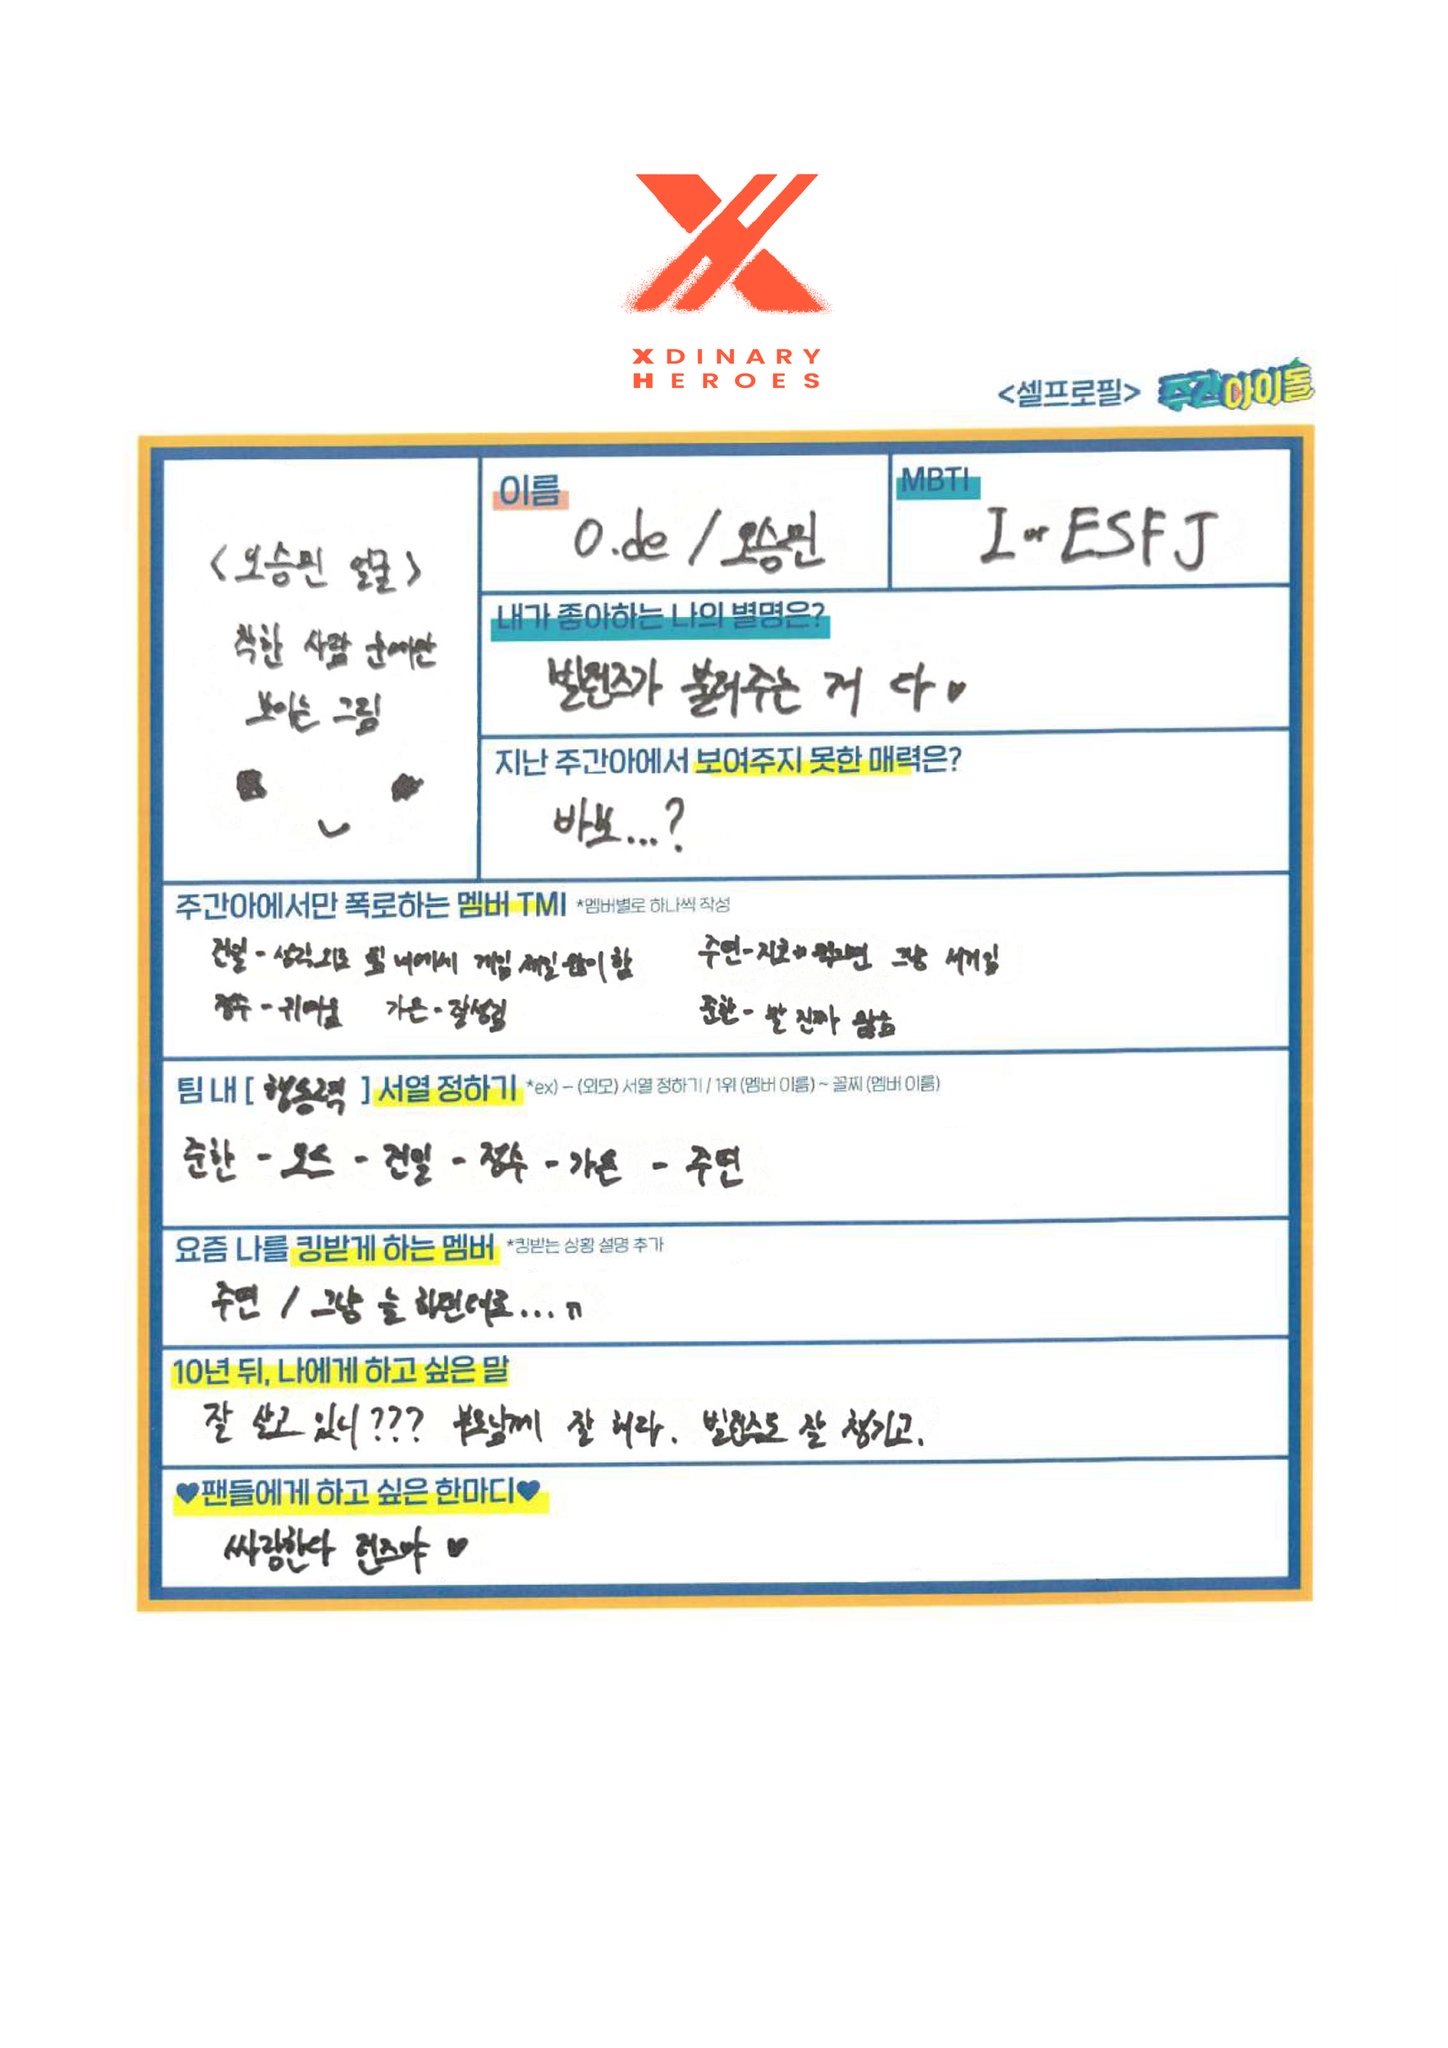 XDINARY
HEROES
<셀프로필> 주간아이돌
<오승민 얼굴>
착한 사람 눈에만
보이는 그림
이름
O.de / 오승민
MBTI
I or ESFJ
내가 좋아하는 나의 별명은?
빌런즈가 불러주는 거 다♥
지난 주간아에서 보여주지 못한 매력은?
바보...?
주간아에서만 폭로하는 멤버 TMI *멤버별로 하나씩 작성
건일 - 생각외로 팀 내에서 게임 제일 많이 함
주연 - 지코가 그냥 세계임
정수 - 귀여움 가온 - 잘생김
준한 - 발 진짜
팀 내 [ 행동력 ] 서열 정하기 *ex) – (외모) 서열 정하기 / 1위 (멤버 이름) ~ 꼴찌 (멤버 이름)
준한 - 오드 - 건일 - 정수 - 가온 - 주연
요즘 나를 킹받게 하는 멤버 *킹받는 상황 설명 추가
주연 / 그냥 늘 하던대로...ㅠ
10년 뒤, 나에게 하고 싶은 말
잘 살고 있니??? 부모님께 잘 해라. 빌런즈도 잘 챙기고.
♥팬들에게 하고 싶은 한마디♥
싸랑한다 런즈야 ♥